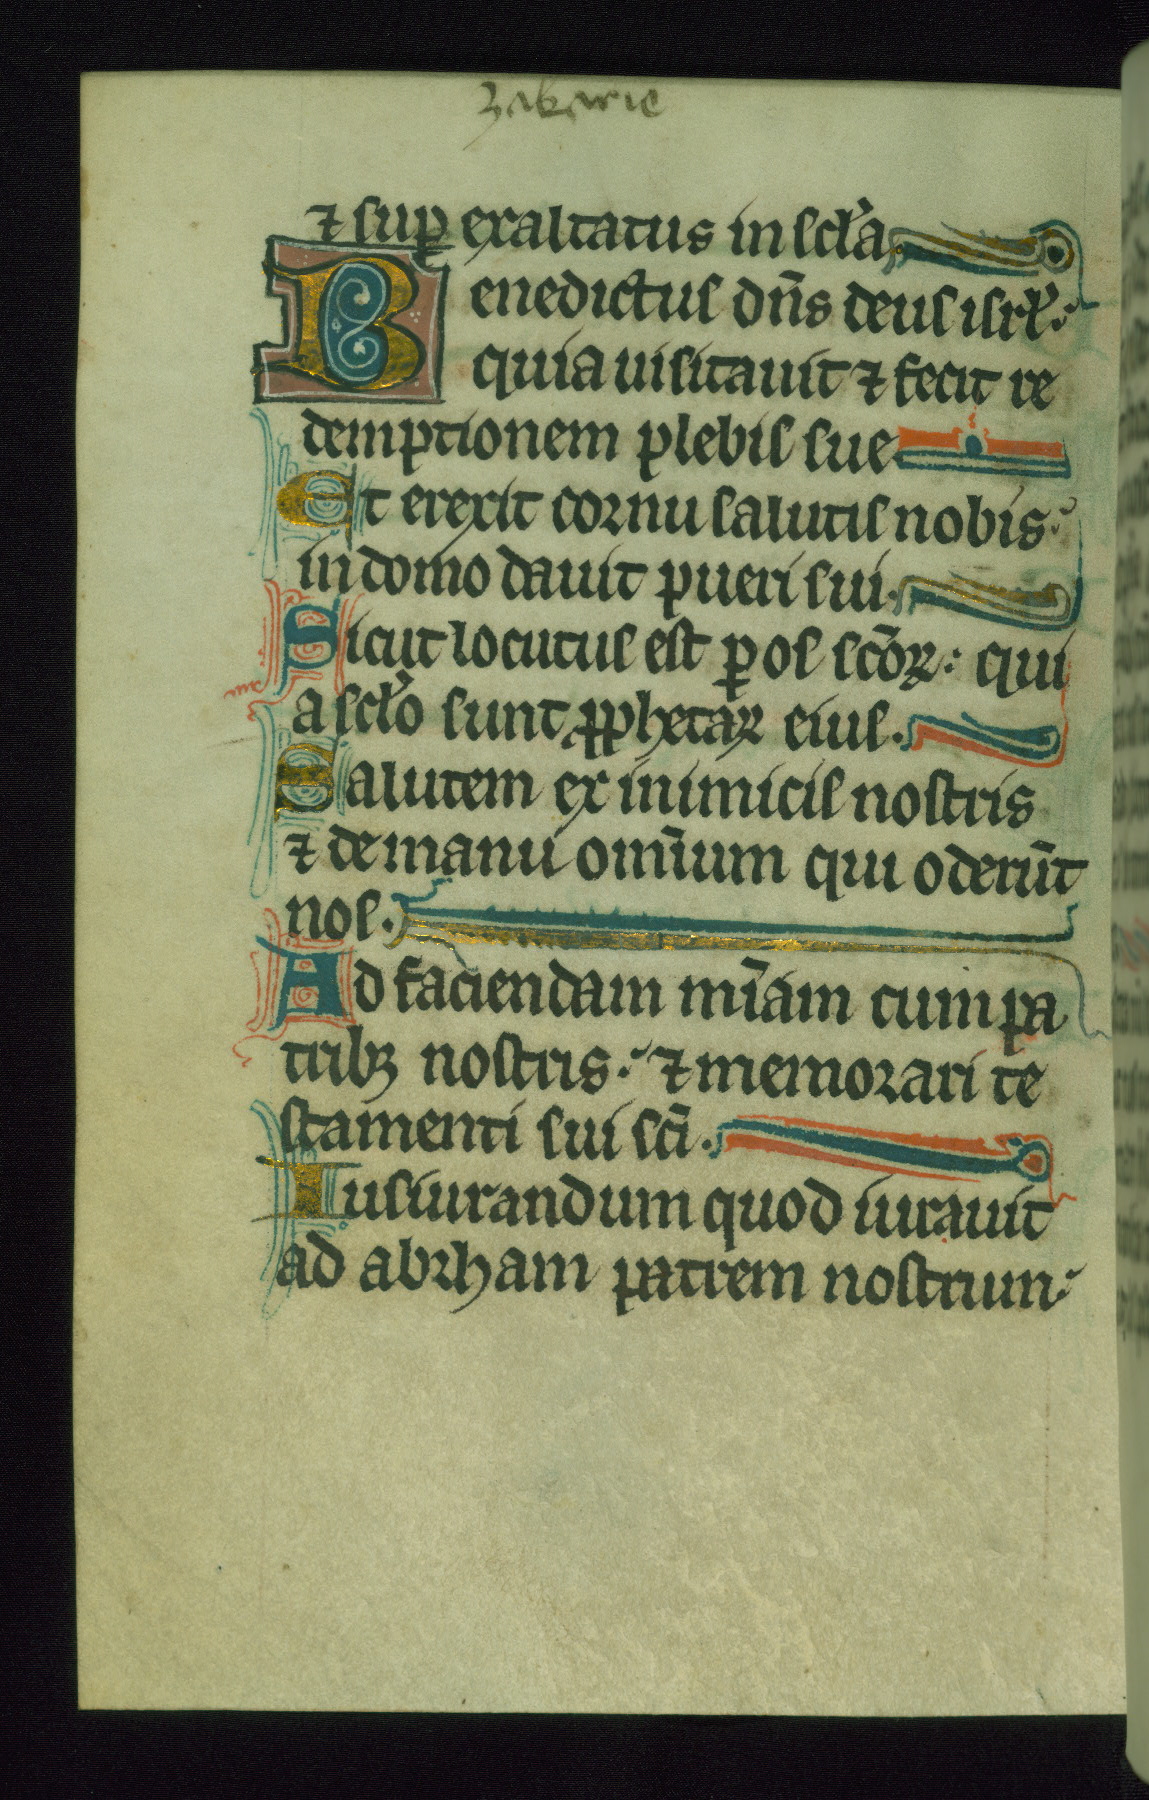 zakarie
⁊ sup̱ exaltatus in scl̾a.
Benedictus dn̄s deus isrl̾.
quia uisitauit ⁊ fecit re
demptionem plebis sue.
Et erexit cornu salutis nobis.
in domo dauit pueri sui.
Sicut locutus est p̱ os sc̄oꝝ: qui
a scl̾o sunt ꝓphetaꝝ eius.
Salutem ex inimicis nostris
⁊ de manu omīum qui oderūt
nos.
Ad faciendam mīam cum pa
tribꝫ nostris. ⁊ memorari te
stamenti sui sc̄i.
Iusiurandum quod iurauit
ad abrham patrem nostrum.